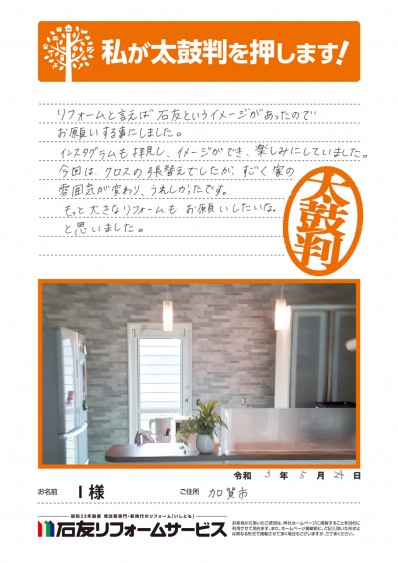 私が太鼓判を押します!
リフォームと言えば石友というイメージがあったので
お願いする事にしました。
インスタグラムも拝見し、イメージができ、楽しみにしていました。
今回は、クロスの張替えでしたが、すごく家の
雰囲気が変わり、うれしかったです。
もっと大きなリフォームも お願いしたいな。
と思いました。
太鼓判
令和 3 年 5 月 24 日
お名前 I 様 ご住所 加賀市
石友リフォームサービス
お客様から頂いたご感想は、弊社ホームページに掲載することを目的に